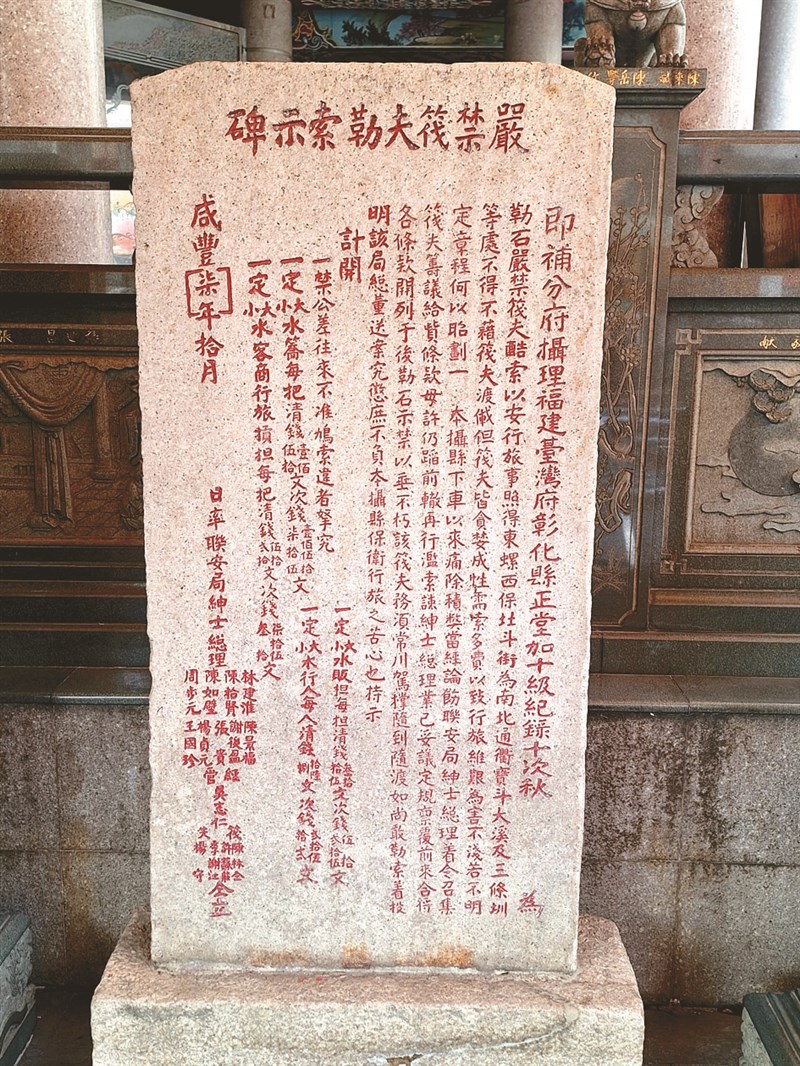 嚴禁筏夫勒索示碑
即補分府攝理福建臺灣府彰化縣正堂加十級紀錄十次秋 為
勒石嚴禁筏夫酷索以安行旅事照得東螺西保社斗街為南北通衢寶斗大溪及三條圳
等處不得不藉筏夫渡儎但筏夫皆貪婪成性需索多貲以致行旅維艱為害不淺若不明
定章程何以昭劃一 本攝縣下車以來痛除積弊當經諭飭聯安局紳士總理着令召集
筏夫籌議給貲條款毋許仍蹈前轍再行濫索諫紳士總理業已妥議定規禀覆前來合行
各條款開列于後勒石示禁以垂不朽該筏夫務須常川駕撐隨到隨渡如尚敢勒索着投
明該局總董送案究懲庶不負本攝縣保衛行旅之苦心也特示
計開
一禁公差往來不准鳩索違者拏究
一定大小水販担每担清錢叁拾拾伍文次錢伍拾貳拾伍文
一定大小水籌每把清錢壹佰伍拾文次錢壹佰伍拾柒拾伍文
一定大小水行人每人清錢拾陸捌文次錢貳拾伍拾貳文
一定大小水客商行旅擔每把清錢伍拾貳拾文次錢柒拾伍叁拾文
咸豐柒年拾月 日率聯安局紳士總理
林建淮 陳景福
陳拾賢 謝俊
陳如璧 張貴 吳志仁
楊貞元
周步元 王國珍
仝立